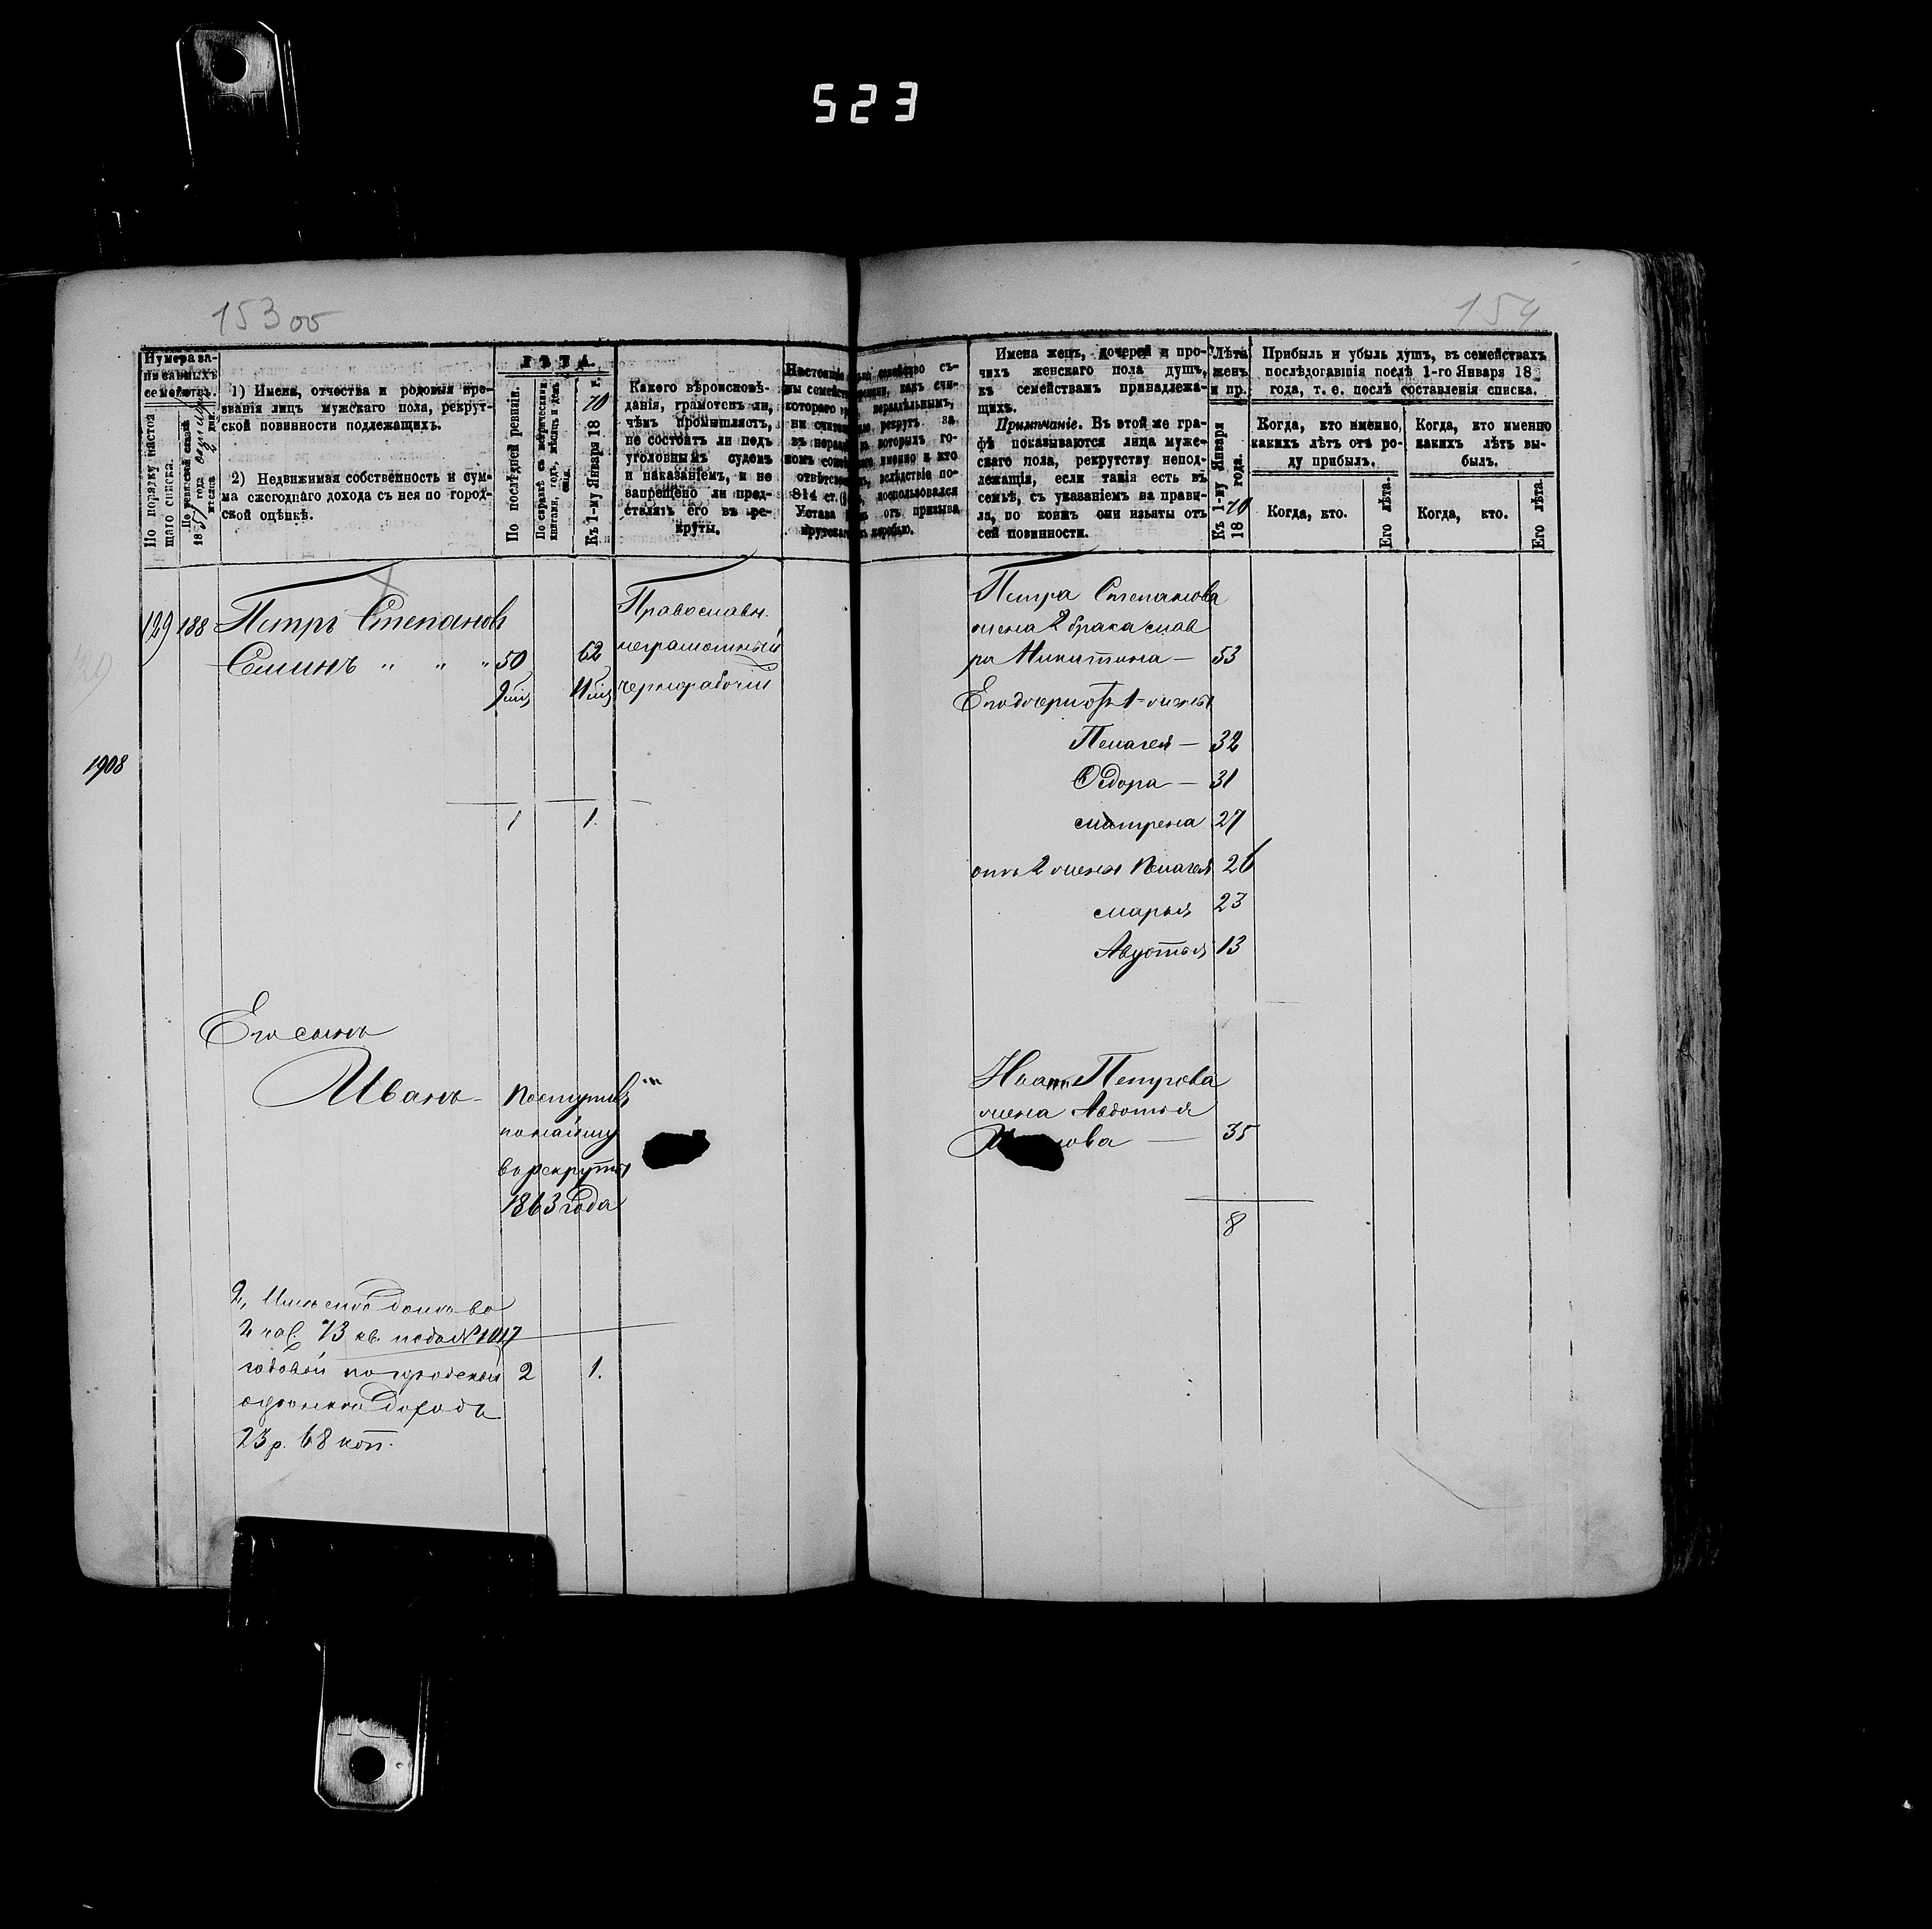 523
153 об
154
Нумера за-
писанныхъ
семействъ.
По порядку настоя
щаго списка.
По ревизской сказкѣ
1857 года
1) Имена, отчества и родовыя про-
званія лицъ мужскаго пола, рекрут-
ской повинности подлежащихъ.
2) Недвижимая собственность и сум-
ма ежегоднаго дохода съ нея по город-
ской оцѣнкѣ.
ЛѢТА.
По послѣдней ревизіи.
По справкѣ съ метрическими
книгами, годъ, мѣсяцъ и день
Къ 1-му Января 1870 г.
Какого вѣроисповѣ-
данія, грамотенъ ли,
чѣмъ промышляетъ,
не состоитъ ли подъ
уголовнымъ судомъ
и наказаніемъ, и не
запрещено ли пред-
ставлять его въ ре-
круты.
Имена женъ, дочерей и про-
чихъ женскаго пола душъ,
къ семействамъ принадлежа-
щихъ.
Примѣчаніе. Въ этой же гра-
фѣ показываются лица муже-
скаго пола, рекрутству непод-
лежащія, если такія есть въ
семьѣ, съ указаніемъ на прави-
ла, по коимъ они изъяты отъ
сей повинности.
Лѣта
женъ
и пр.
Къ 1-му Января
1870 года.
Прибыль и убыль душъ, въ семействахъ
послѣдовавшія послѣ 1-го Января 18
года, т. е. послѣ составленія списка.
Когда, кто именно,
какихъ лѣтъ отъ ро-
ду прибылъ.
Когда, кто именно
какихъ лѣтъ вы-
былъ.
Когда, кто.
Его лѣта.
Когда, кто.
Его лѣта.
129 188 Петръ Степановъ
Православн.
50 62 неграмотный
чернорабочій
129
1908
1 1.
Петра Степанова
жена 2 брака Мав
ра Никитина — 53
Его дочери отъ 1-жены
Пелагея — 32
Федора — 31
Матрена 27
отъ 2 жены Пелагея 26
Марья 23
Авдотья 13
Его сынъ
Иванъ - поступилъ
по найму
въ рекруты
1863 года
Ивана Петрова
жена Авдотья
35
8
2, Имѣетъ домъ во
2 час. 73 кв. подъ № 1017
годовой по городской 2 1.
оцѣнкѣ доходъ
23 р. 68 коп.